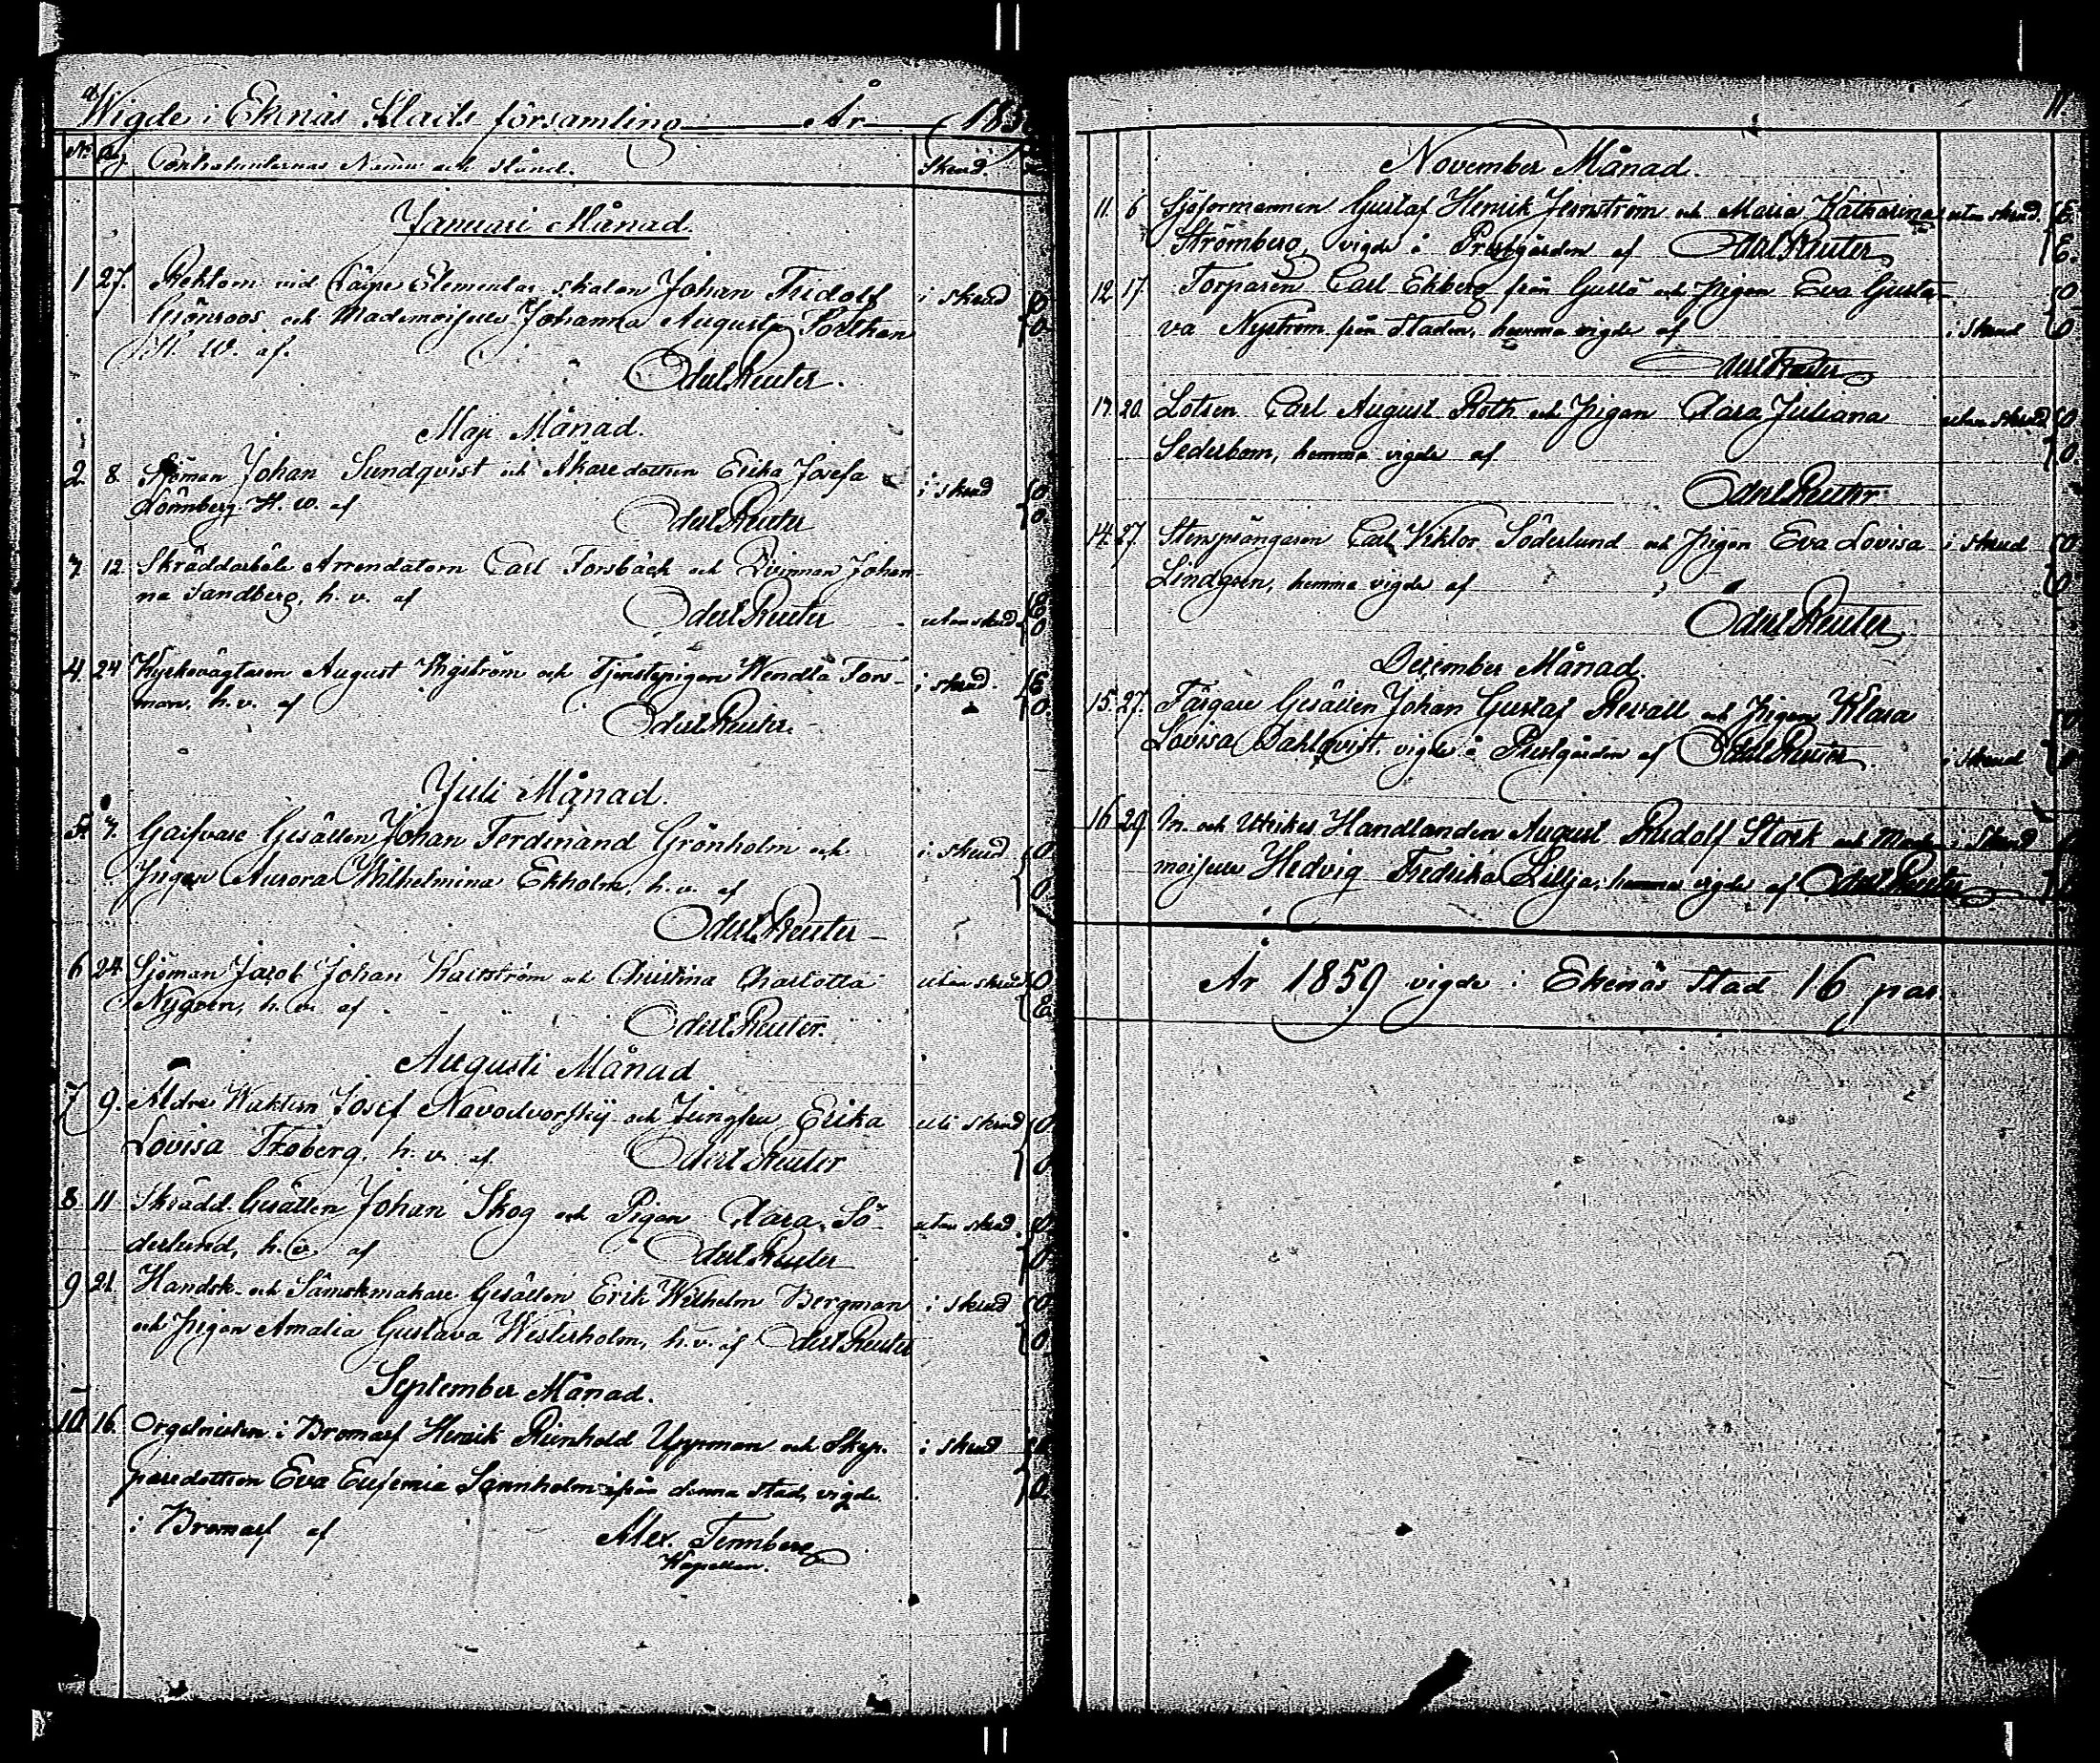 Wigde i Ekenäs Stads församling År 185
No Dag Contrahenternas Namn och stånd. Skrud.
Januari Månad.
1 27. Rektorn vid Lägre Elementar skolan Johan Fridolf i skrud 0
Grönroos och Mademoiselle Johanna Augusta Porthan 0
H. W. af.
Odert Reuter.
Maji Månad.
2. 8. Sjöman Johan Sundqvist och Åkaredottren Erika Josefa i skrud 0
Lönnberg. H. w. af Odert Reuter 0
3 12 Skräddarböle Arrendatorn Carl Forsbäck och Qvinnan Johan-
na Sandberg, h. v. af Odert Reuter utan skrud E 0
4. 24 Kyrkovägtaren August Wigström och Tjenstepigan Wendla Fors- i skrud. E
man, h. v. af Odert Reuter. 0
Juli Månad.
5 3. Garfvare Gesällen Johan Ferdinand Grönholm och i skrud 0
Pigan Aurora Wilhelmina Ekholm, h. v. af 0
Odert Reuter
6 24. Sjöman Jacob Johan Karlström och Christina Charlotta utan skrud 0
Nygren, h. v. af Odert Reuter. E
Augusti Månad
7 9. Äldre Wakten Josef Navodvorskij och Jungfru Erika uti skrud 0
Lovisa Froberg, h. v. af Odert Reuter 0
8 11 Skrädd. Gesällen Johan Skog och Pigan Clara Sö- utan skrud 0
derlund, h. v. af Odert Reuter 0
9 21. Handsk- och Sämskmakare Gesällen Erik Wilhelm Bergman i skrud 0
och Pigan Amalia Gustava Westerholm, h. v. af Odert Reuter 0
September Månad.
10 16. Orgelnisten i Bromarf Henrik Reinhold Uppman och Skep- i skrud
paredottren Eva Eufemia Sannholm ifrån denna stad, vigde 0
i Bromarf af Alex. Tennberg
Kapellan.
11.
November Månad.
11. 6 Sjöfermannen Gustaf Henrik Jernström och Maria Katharina utan skrud. E
Strömberg, vigde i Prestgården af Odert Reuter E.
12 17. Torparen Carl Ekberg från Gullö och Pigan Eva Gusta- 0
va Nyström från staden, hemma vigde af i skrud 0
Odert Reuter
13. 20. Lotsen Carl August Roth och Pigan Clara Juliana utan skrud 0
Sederbom, hemma vigde af 0.
Odert Reuter
14. 27. Stensprängaren Carl Viktor Söderlund och Pigan Eva Lovisa i skrud 0
Lindgren, hemma vigde af 0
Odert Reuter
December Månad.
15. 27. Färgare Gesällen Johan Gustaf Revall och Pigan Klara
Lovisa Dahlqvist, vigde i Prestgården af Odert Reuter i skrud
16 29. In- och Utrikes Handlanden August Rudolf Stork och Made- i skrud
moiselle Hedvig Fredrika Lilja, hemma vigde af Odert Reuter
År 1859 vigde i Ekenäs Stad 16 par.